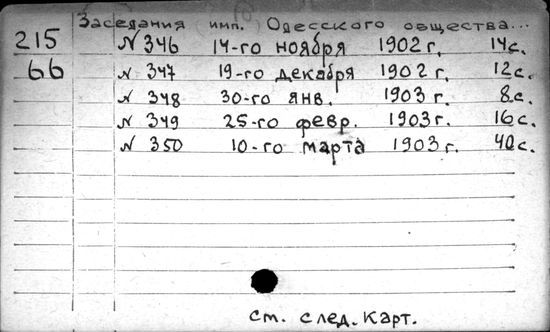 Заседания имп. Одесского общества...
215 № 346 14-го ноября 1902 г. 14 с.
66 № 347 19-го декабря 1902 г. 12 с.
№ 348 30-го янв. 1903 г. 8 с.
№ 349 25-го февр. 1903 г. 16 с.
№ 350 10-го марта 1903 г. 40 с.
см. след. карт.